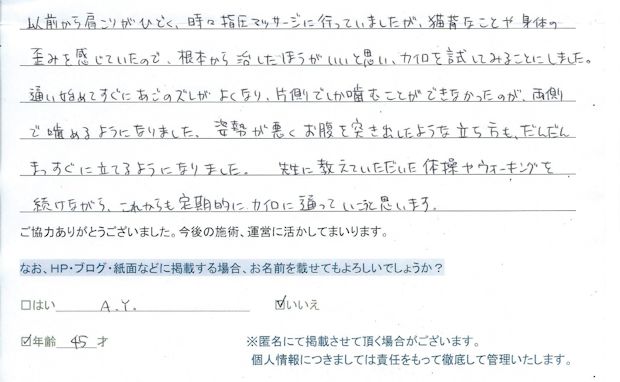 以前から肩こりがひどく、時々指圧マッサージに行っていましたが、猫背なことや身体の
歪みを感じていたので、根本から治したほうがいいと思い、カイロを試してみることにしました。
通い始めてすぐにあごのズレがよくなり、片側でしか噛むことができなかったのが、両側
で噛めるようになりました。姿勢が悪くお腹を突き出したような立ち方も、だんだん
まっすぐに立てるようになりました。先生に教えていただいた体操やウォーキングを
続けながら、これからも定期的にカイロに通っていこうと思います。
ご協力ありがとうございました。今後の施術、運営に活かしてまいります。
なお、HP・ブログ・紙面などに掲載する場合、お名前を載せてもよろしいでしょうか？
□はい A.Y. ☑いいえ
☑年齢 45 才 ※匿名にて掲載させて頂く場合がございます。
個人情報につきましては責任をもって徹底して管理いたします。